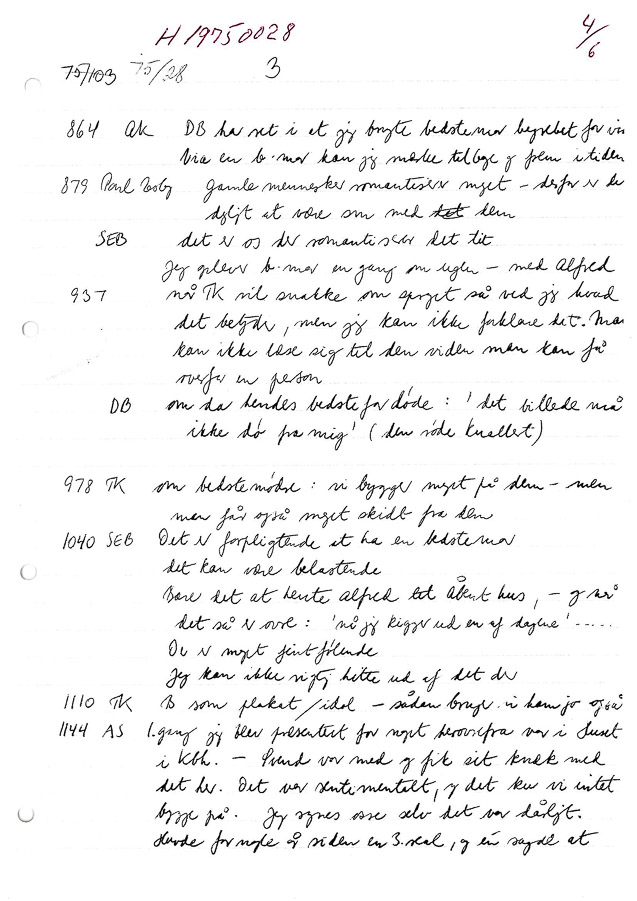 H 19750028
4/6
75/103 75/28 3
864 AK DB har ret i at jeg brugte bedstemor begrebet for
Via en b-mor kan jeg mærke tilbage og frem i tiden
879 Poul gamle mennesker romantiserer meget – derfor er de
dejligt at være sm med dem
SEB det er os der romantiserer det tit
Jeg oplever b-mor en gang om ugen – med Alfred
937 når TK vil snakke om sproget så ved jeg hvad
det betyder, men jeg kan ikke forklare det. Man
kan ikke læse sig til den viden man kan få
overfor en person
DB om da hendes bedstefor døde: 'det billede må
ikke dø fra mig' (den røde knallert)
978 TK om bedstemødre: vi bygger meget på dem – men
man får også meget skidt fra dem
1040 SEB Det er forpligtende at ha en bedstemor
det kan være belastende
Bare det at hente Alfred til Åbent hus, – og når
det så er ovre: 'nå jeg kigger ud en af dagene' .....
De er meget fintfølende
Jeg kan ikke rigtig hitte ud af det der
1110 TK B som plakat/idol – sådan bruger vi ham jo også
1144 AS 1. gang jeg blev præsenteret for noget herovrefra var i Huset
i Kbh. – Svend var med og fik sit knæk med
det her. Det var sentimentalt, og det ku vi intet
bygge på. Jeg synes osse selv det var dårligt.
Havde for nogle år siden en 3.real, og én sagde at